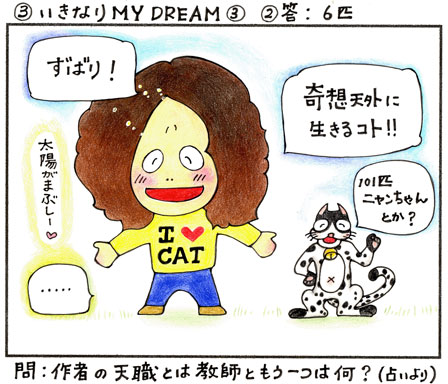 ③ いきなり MY DREAM ③ ②答：6匹
ずばり！
奇想天外に
生きるコト!!
太陽がまぶしー♡
101匹
ニャンちゃん
とか？
I ♥
CAT
‥‥‥
問：作者の天職とは教師ともう一つは何？(占いより)